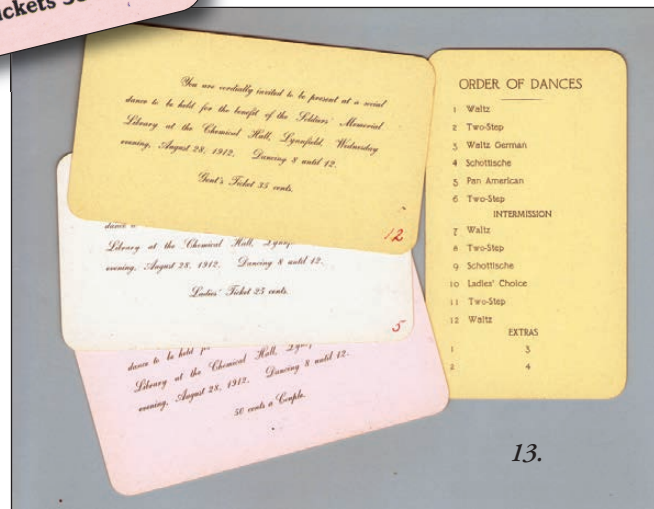 ickets
You are cordially invited to be present at a social
dance to be held for the benefit of the Soldiers' Memorial
Library at the Chemical Hall, Lynnfield, Wednesday
evening, August 28, 1912. Dancing 8 until 12.
Gent's Ticket 35 cents.
12
dance
Library at the Chemical Hall, Lynnf
evening, August 28, 1912. Dancing 8 until 12.
Ladies' Ticket 25 cents.
5
dance to be held
Library at the Chemical Hall, Lyn
evening, August 28, 1912. Dancing 8 until 12.
50 cents a Couple.
ORDER OF DANCES
1 Waltz
2 Two-Step
3 Waltz German
4 Schottische
5 Pan American
6 Two-Step
INTERMISSION
7 Waltz
8 Two-Step
9 Schottische
10 Ladies' Choice
11 Two-Step
12 Waltz
EXTRAS
1 3
2 4
13.